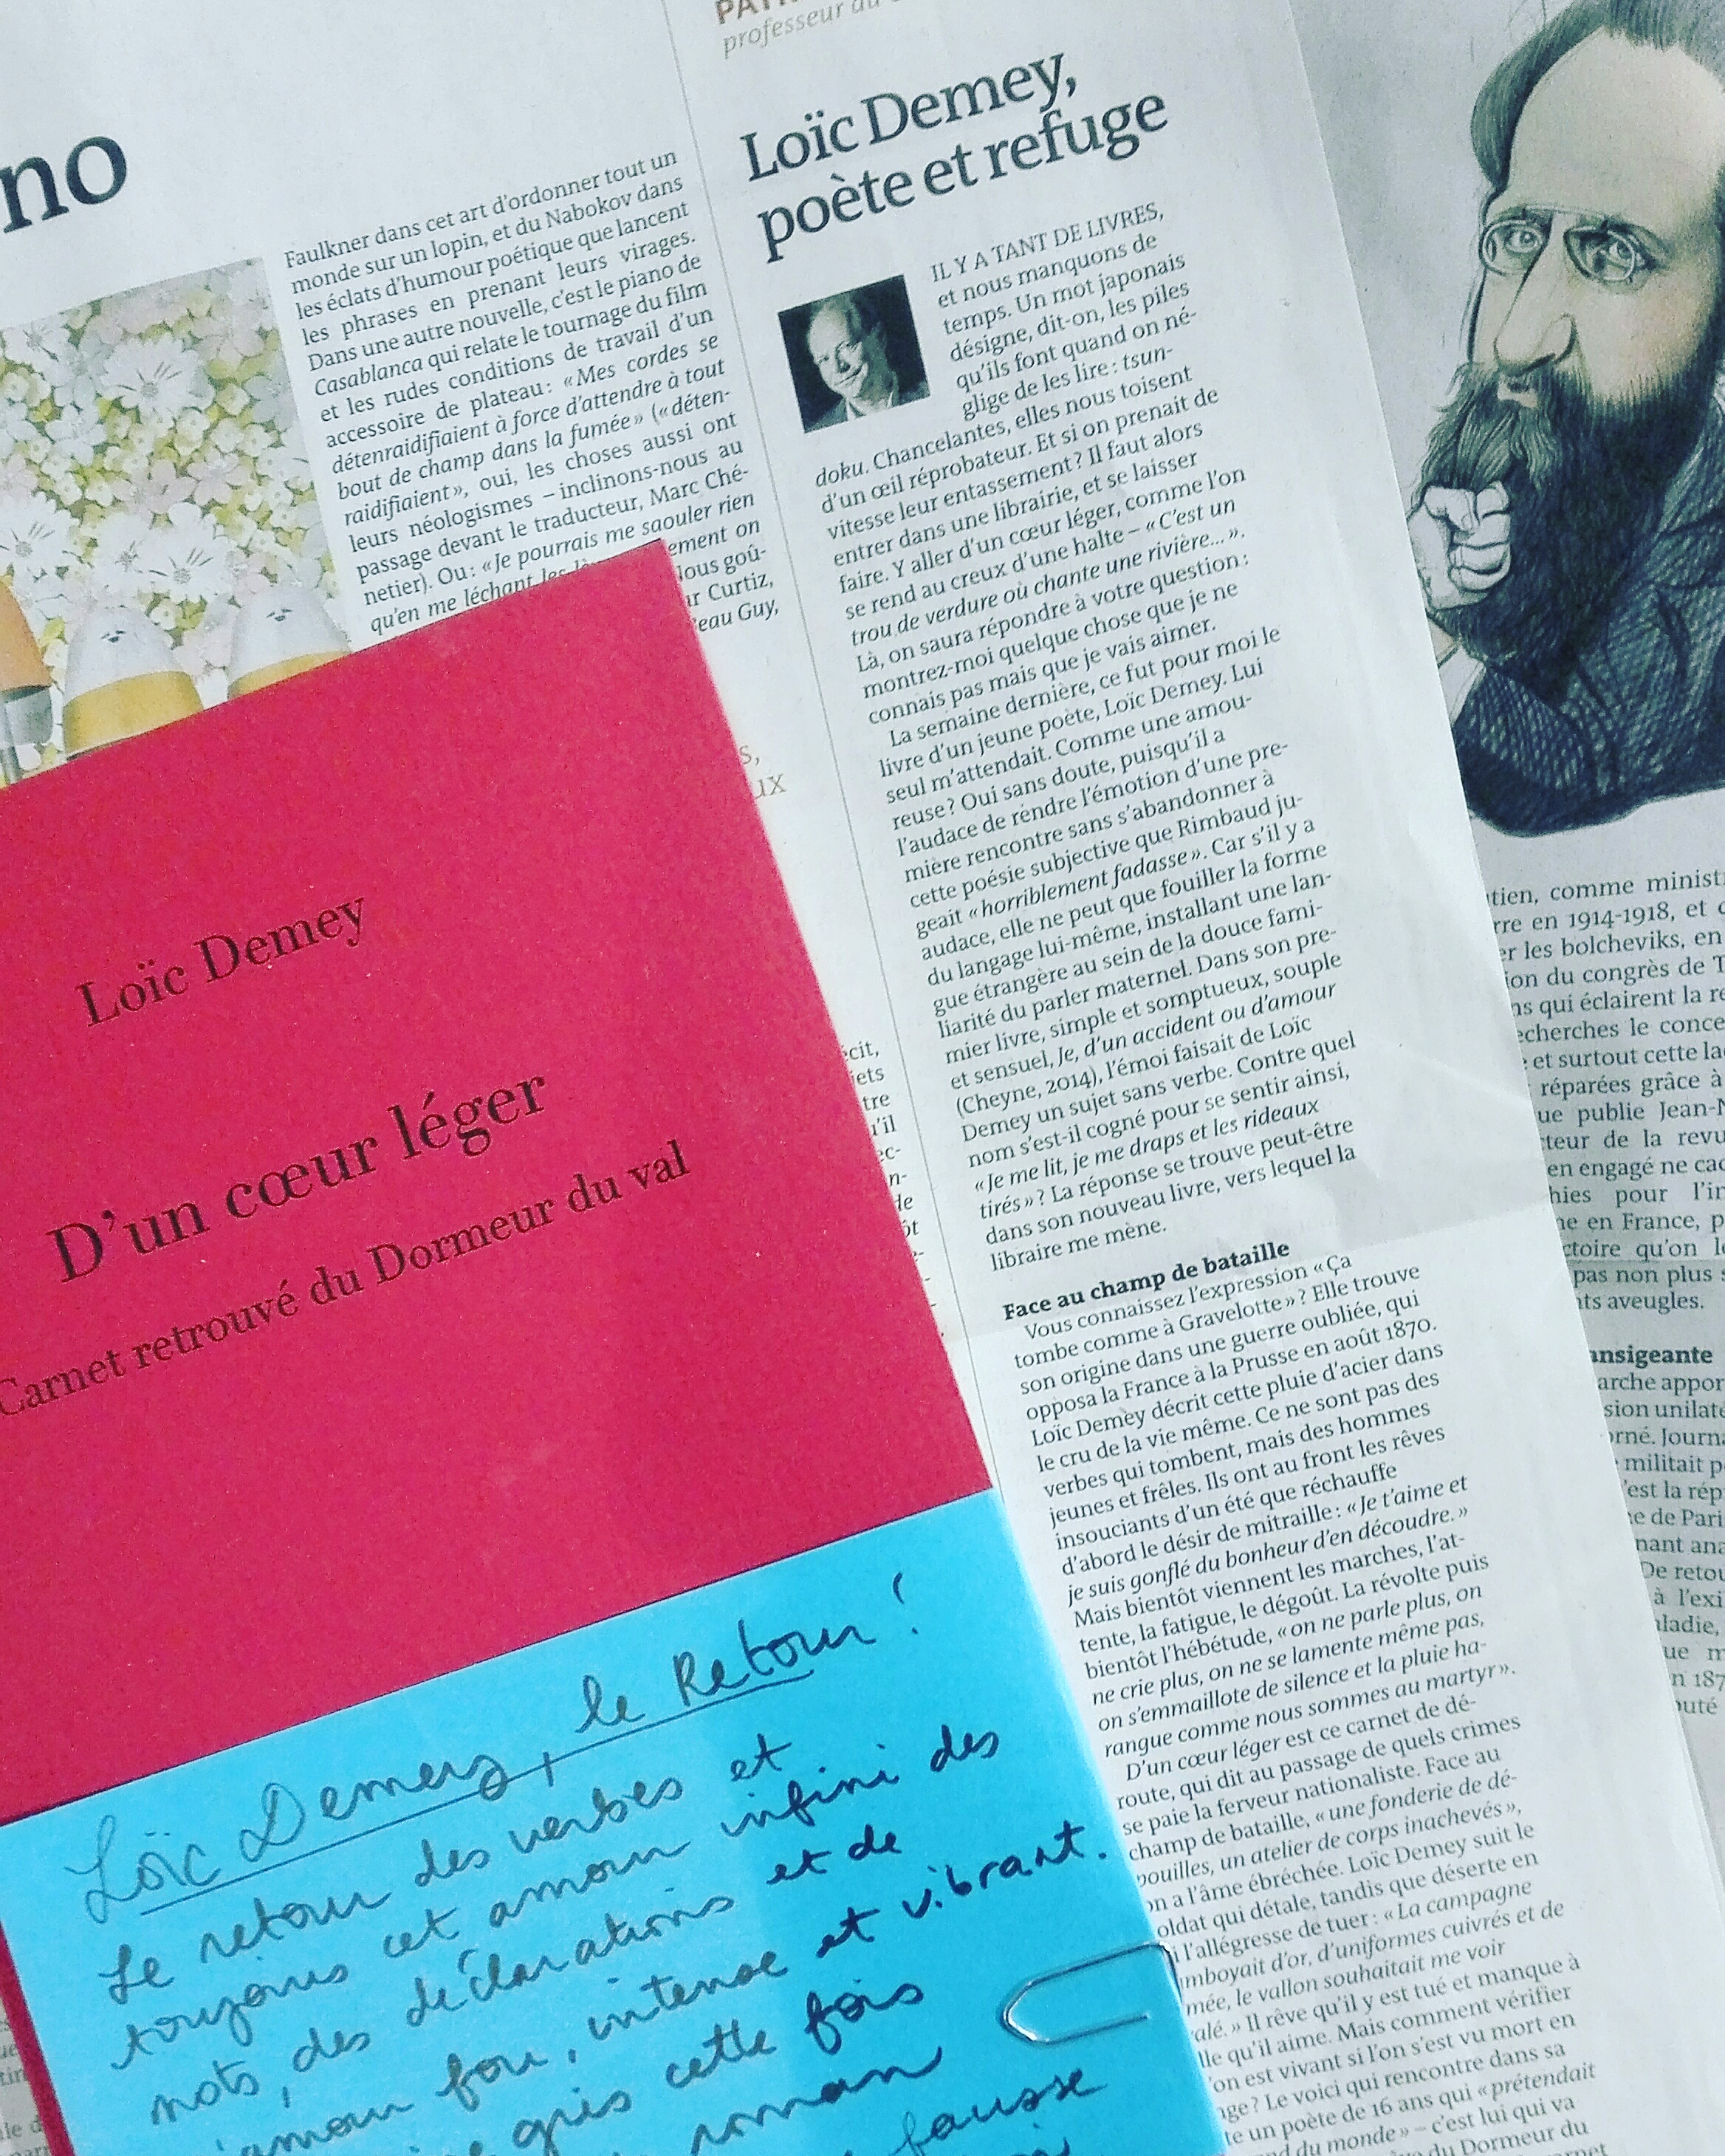 no
Faulkner dans cet art d'ordonner tout un
monde sur un lopin, et du Nabokov dans
les éclats d'humour poétique que lancent
les phrases en prenant leurs virages.
Dans une autre nouvelle, c'est le piano de
Casablanca qui relate le tournage du film
et les rudes conditions de travail d'un
accessoire de plateau : « Mes cordes se
détenraidifiaient à force d'attendre à tout
bout de champ dans la fumée » (« déten-
raidifiaient », oui, les choses aussi ont
leurs néologismes – inclinons-nous au
passage devant le traducteur, Marc Ché-
netier). Ou : « Je pourrais me saouler rien
qu'en me léchant les
ement on
Nous goû-
Curtiz,
eau Guy,
professeur au
Loïc Demey,
poète et refuge
IL Y A TANT DE LIVRES,
et nous manquons de
temps. Un mot japonais
désigne, dit-on, les piles
qu'ils font quand on né-
glige de les lire : tsun-
doku. Chancelantes, elles nous toisent
d'un œil réprobateur. Et si on prenait de
vitesse leur entassement ? Il faut alors
entrer dans une librairie, et se laisser
faire. Y aller d'un cœur léger, comme l'on
se rend au creux d'une halte – « C'est un
trou de verdure où chante une rivière… ».
Là, on saura répondre à votre question :
montrez-moi quelque chose que je ne
connais pas mais que je vais aimer.
La semaine dernière, ce fut pour moi le
livre d'un jeune poète, Loïc Demey. Lui
seul m'attendait. Comme une amou-
reuse ? Oui sans doute, puisqu'il a
l'audace de rendre l'émotion d'une pre-
mière rencontre sans s'abandonner à
cette poésie subjective que Rimbaud ju-
geait « horriblement fadasse ». Car s'il y a
audace, elle ne peut que fouiller la forme
du langage lui-même, installant une lan-
gue étrangère au sein de la douce fami-
liarité du parler maternel. Dans son pre-
mier livre, simple et somptueux, souple
et sensuel, Je, d'un accident ou d'amour
(Cheyne, 2014), l'émoi faisait de Loïc
Demey un sujet sans verbe. Contre quel
nom s'est-il cogné pour se sentir ainsi,
« Je me lit, je me draps et les rideaux
tirés » ? La réponse se trouve peut-être
dans son nouveau livre, vers lequel la
libraire me mène.
Face au champ de bataille
Vous connaissez l'expression « Ça
tombe comme à Gravelotte » ? Elle trouve
son origine dans une guerre oubliée, qui
opposa la France à la Prusse en août 1870.
Loïc Demey décrit cette pluie d'acier dans
le cru de la vie même. Ce ne sont pas des
verbes qui tombent, mais des hommes
jeunes et frêles. Ils ont au front les rêves
insouciants d'un été que réchauffe
d'abord le désir de mitraille : « Je t'aime et
je suis gonflé du bonheur d'en découdre. »
Mais bientôt viennent les marches, l'at-
tente, la fatigue, le dégoût. La révolte puis
bientôt l'hébétude, « on ne parle plus, on
ne crie plus, on ne se lamente même pas,
on s'emmaillote de silence et la pluie ha-
rangue comme nous sommes au martyr ».
D'un cœur léger est ce carnet de dé-
route, qui dit au passage de quels crimes
se paie la ferveur nationaliste. Face au
champ de bataille, « une fonderie de dé-
pouilles, un atelier de corps inachevés »,
on a l'âme ébréchée. Loïc Demey suit le
oldat qui détale, tandis que déserte en
l'allégresse de tuer : « La campagne
mboyait d'or, d'uniformes cuivrés et de
mée, le vallon souhaitait me voir
alé. » Il rêve qu'il y est tué et manque à
lle qu'il aime. Mais comment vérifier
'on est vivant si l'on s'est vu mort en
ge ? Le voici qui rencontre dans sa
te un poète de 16 ans qui « prétendait
nd du monde » – c'est lui qui va
du Dormeur du
Loïc Demey
D'un cœur léger
Carnet retrouvé du Dormeur du val
Loïc Demey, le Retour !
Le retour des verbes et
toujours cet amour infini des
mots, des déclarations et de
l'amour fou, intense et vibrant.
gris cette fois
roman
fausse
tien, comme minist
rre en 1914-1918, et
er les bolcheviks, en
ion du congrès de T
ns qui éclairent la re
echerches le conce
et surtout cette la
réparées grâce à
ue publie Jean-
teur de la revu
en engagé ne ca
hies pour l'in
ne en France, p
ctoire qu'on
pas non plus
nts aveugles.
ansigeante
arche appor
sion unilat
orné. Journ
militait p
'est la rép
ne de Pari
nant ana
De retou
à l'exi
ladie,
ue m
n 187
outé